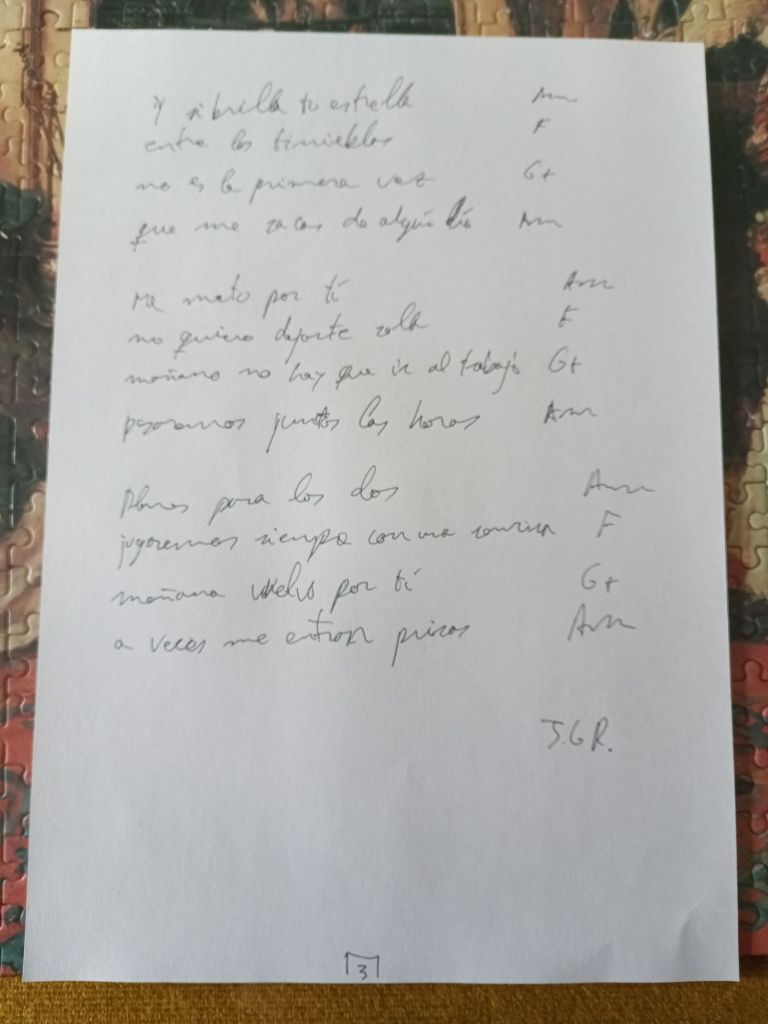 Y si brilla tu estrella Am
entre las tinieblas F
no es la primera vez G+
que me sacas de algún lío Am
Me mato por tí Am
no quiero dejarte sola F
mañana no hay que ir al trabajo G+
pasaremos juntos las horas Am
Planes para los dos Am
jugaremos siempre con una sonrisa F
mañana vuelvo por tí G+
a veces me entran prisas Am
J.G.R.
3